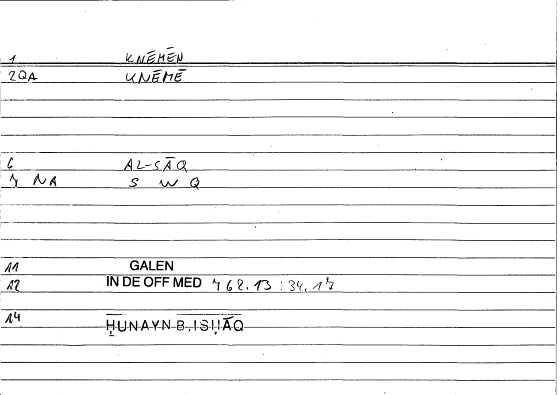 1 KNĒMĒN
2QA KNĒMĒ
6 AL-SĀQ
7 NA S W Q
11 GALEN
12 IN DE OFF MED 762.13:34.17
14 ḤUNAYN B.ISḤĀQ